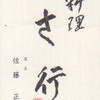 料理
さ行
佐藤 正